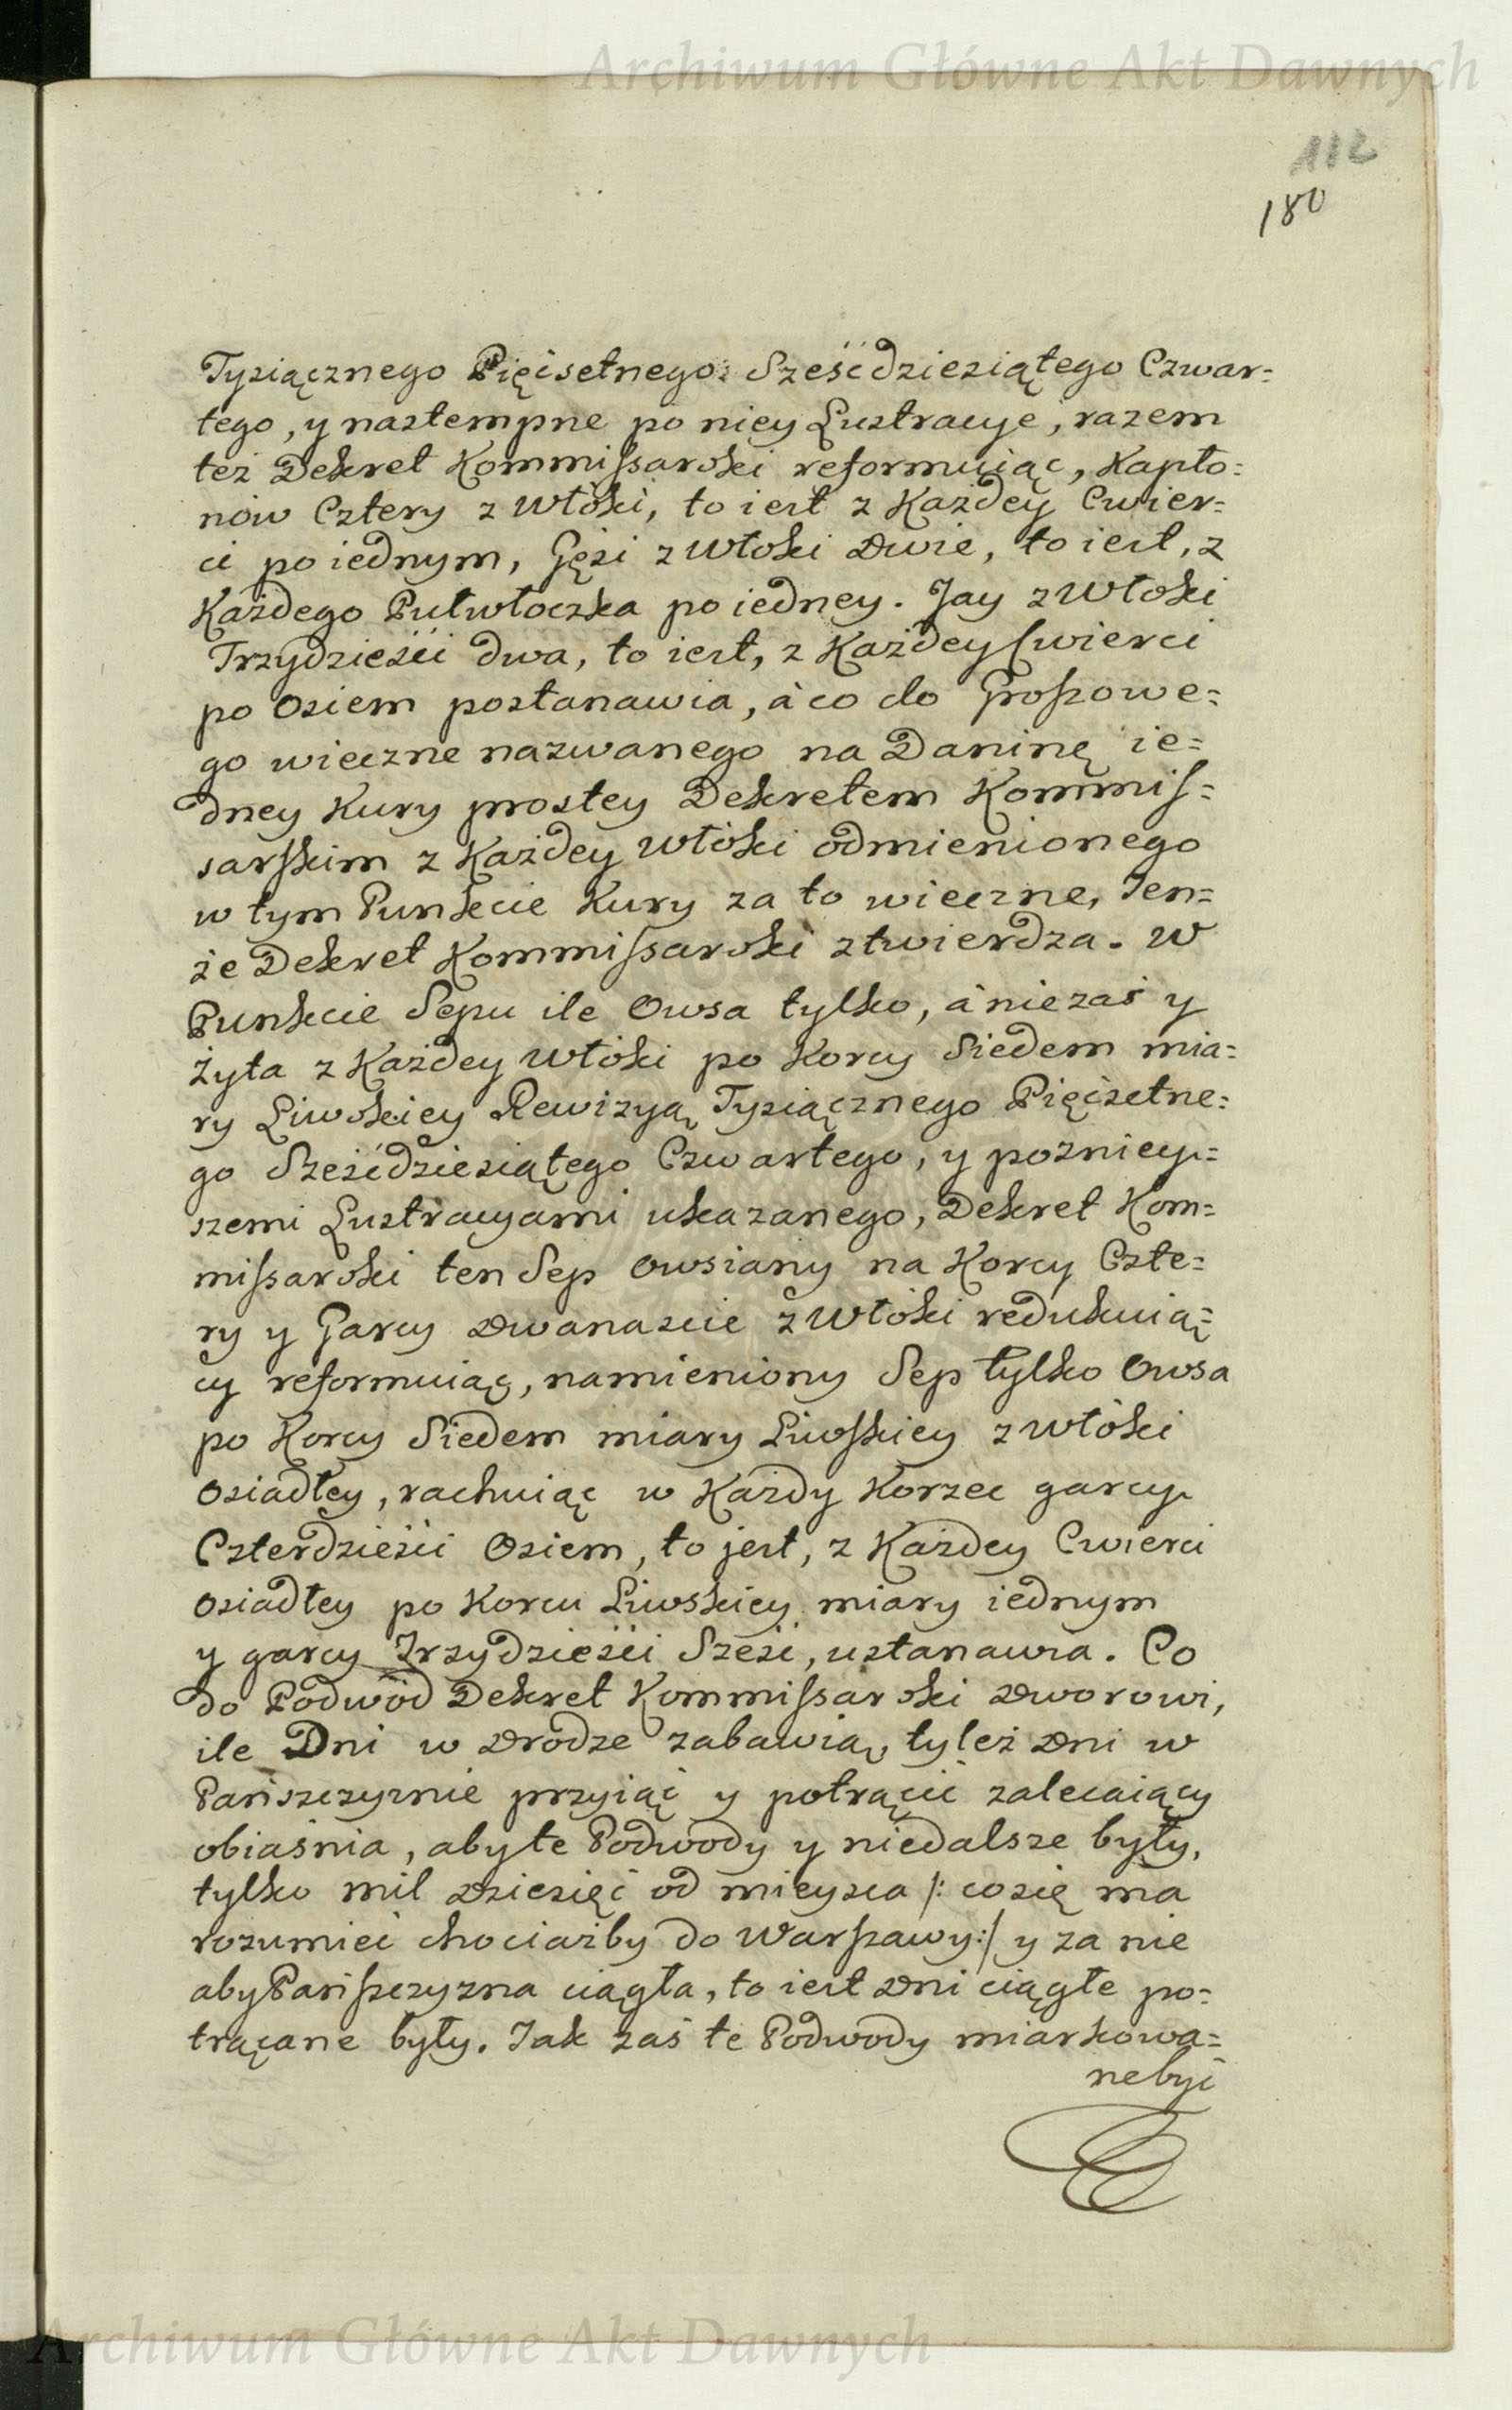 Archiwum Główne Akt Dawnych
112
180
Tysiącznego Pięćsetnego Sześćdziesiątego Czwar=
tego, y nastempne po niey Lustracye, razem
też Dekret Kommissarski reformuiąc, Kapło=
nów Cztery z Włóki, to iest z Każdey Cwier=
ci po iednym, Gęsi z Włoki Dwie, to iest, z
Każdego Pułwłoczka po iedney. Jay z Włoki
Trzydzieści dwa, to iest, z Każdey Cwierci
po Osiem postanawia, à co do Groszowe=
go wieczne nazwanego na Daninę ie=
dney Kury prostey Dekretem Kommis=
sarskim z Każdey Włóki odmienionego
w tym Punkcie Kury za to wieczne, Ten=
że Dekret Kommissarski ztwierdza. W
Punkcie Sepu ile Owsa tylko, à niezaś y
Żyta z Każdey Włóki po Korcy Siedem mia=
ry Liwskiey Rewizyą Tysiącznego Pięćsetne=
go Sześćdziesiątego Czwartego, y pozniey=
szemi Lustracyami ukazanego, Dekret Kom=
missarski ten Sep Owsiany na Korcy Czte=
ry y Garcy Dwanaście z Włóki redukuią=
cy reformuiąc, namieniony Sep tylko Owsa
po Korcy Siedem miary Liwskiey z Włóki
Osiadłey, rachuiąc w Każdy Korzec garcy
Czterdzieści Osiem, to jest, z Każdey Cwierci
Osiadłey po Korcu Liwskiey miary iednym
y garcy Trzydzieści Sześć, ustanawia. Co
do Podwod Dekret Kommissarski Dworowi,
ile Dni w Drodze zabawią, tyleż Dni w
Pańszczyznie przyiąć y potrącić zalecaiący
obiaśnia, aby te Podwody y niedalsze były,
tylko mil Dziesięć od mieysca /: co się ma
rozumieć chociażby do Warszawy :/ y za nie
aby Pańszczyzna ciągła, to iest Dni ciągłe po=
trącane były. Jak zaś te Podwody miarkowa=
ne być
Archiwum Główne Akt Dawnych